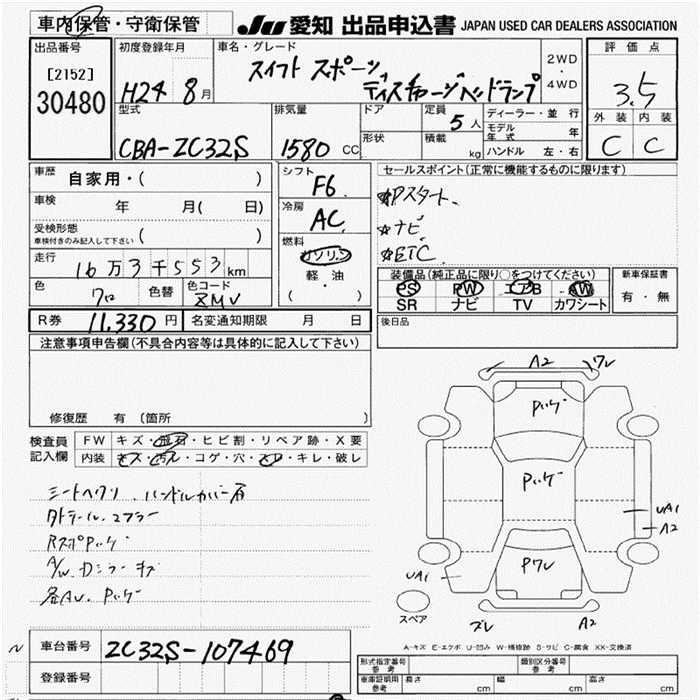 車内保管・守衛保管
JU 愛知 出品申込書 JAPAN USED CAR DEALERS ASSOCIATION
出品番号
[2152]
30480
初度登録年月
H24 8月
車名・グレード
スイフト スポーツ
ディスチャージヘッドランプ
2WD
・
4WD
評価点
3.5
外装 内装
C C
型式
CBA-ZC32S
排気量
1580 CC
ドア
形状
定員
5人
積載
kg
ディーラー・並行
モデル年式 年
ハンドル 左・右
車歴
自家用・( )
車検
年 月( 日)
受検形態
車検付きのみ記入して下さい ( )
走行
16万3千553km
色
クロ
色替
色コード
ZMV
シフト
F6
冷房
AC
燃料
ガソリン
軽・油
( ・ )
セールスポイント(正常に機能するものに限ります)
☆Pスタート、
☆ナビ
☆ETC
装備品(純正品に限り○をつけてください)
PS PW エアB AW
SR ナビ TV カワシート
新車保証書
有・無
R券 11,330円
名変通知期限 月 日
後日品
注意事項申告欄(不具合内容等は具体的に記入して下さい)
修復歴 有(箇所 )
検査員記入欄
FW キズ・飛石・ヒビ割・リペア跡・X要
内装 キズ・汚レ・コゲ・穴・スレ・キレ・破レ
シートヘタリ、ハンドルカバー有
A2 ワレ
Pハゲ
Pハゲ
Pワレ
UA1
A2
UA1
スペア
ズレ A2
A-キズ E-エクボ U-凹み W-補修跡 S-サビ C-腐食 XX-交換済
車台番号
ZC32S-107469
登録番号
形式指定番号
参考
類別区分番号
参考
車庫証明用
参考
長さ cm
幅 cm
高さ cm